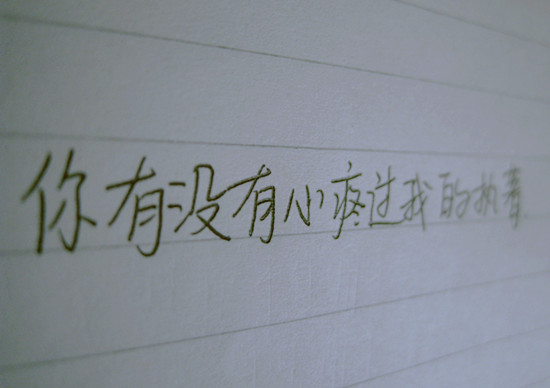 你有没有小疼过我的执着